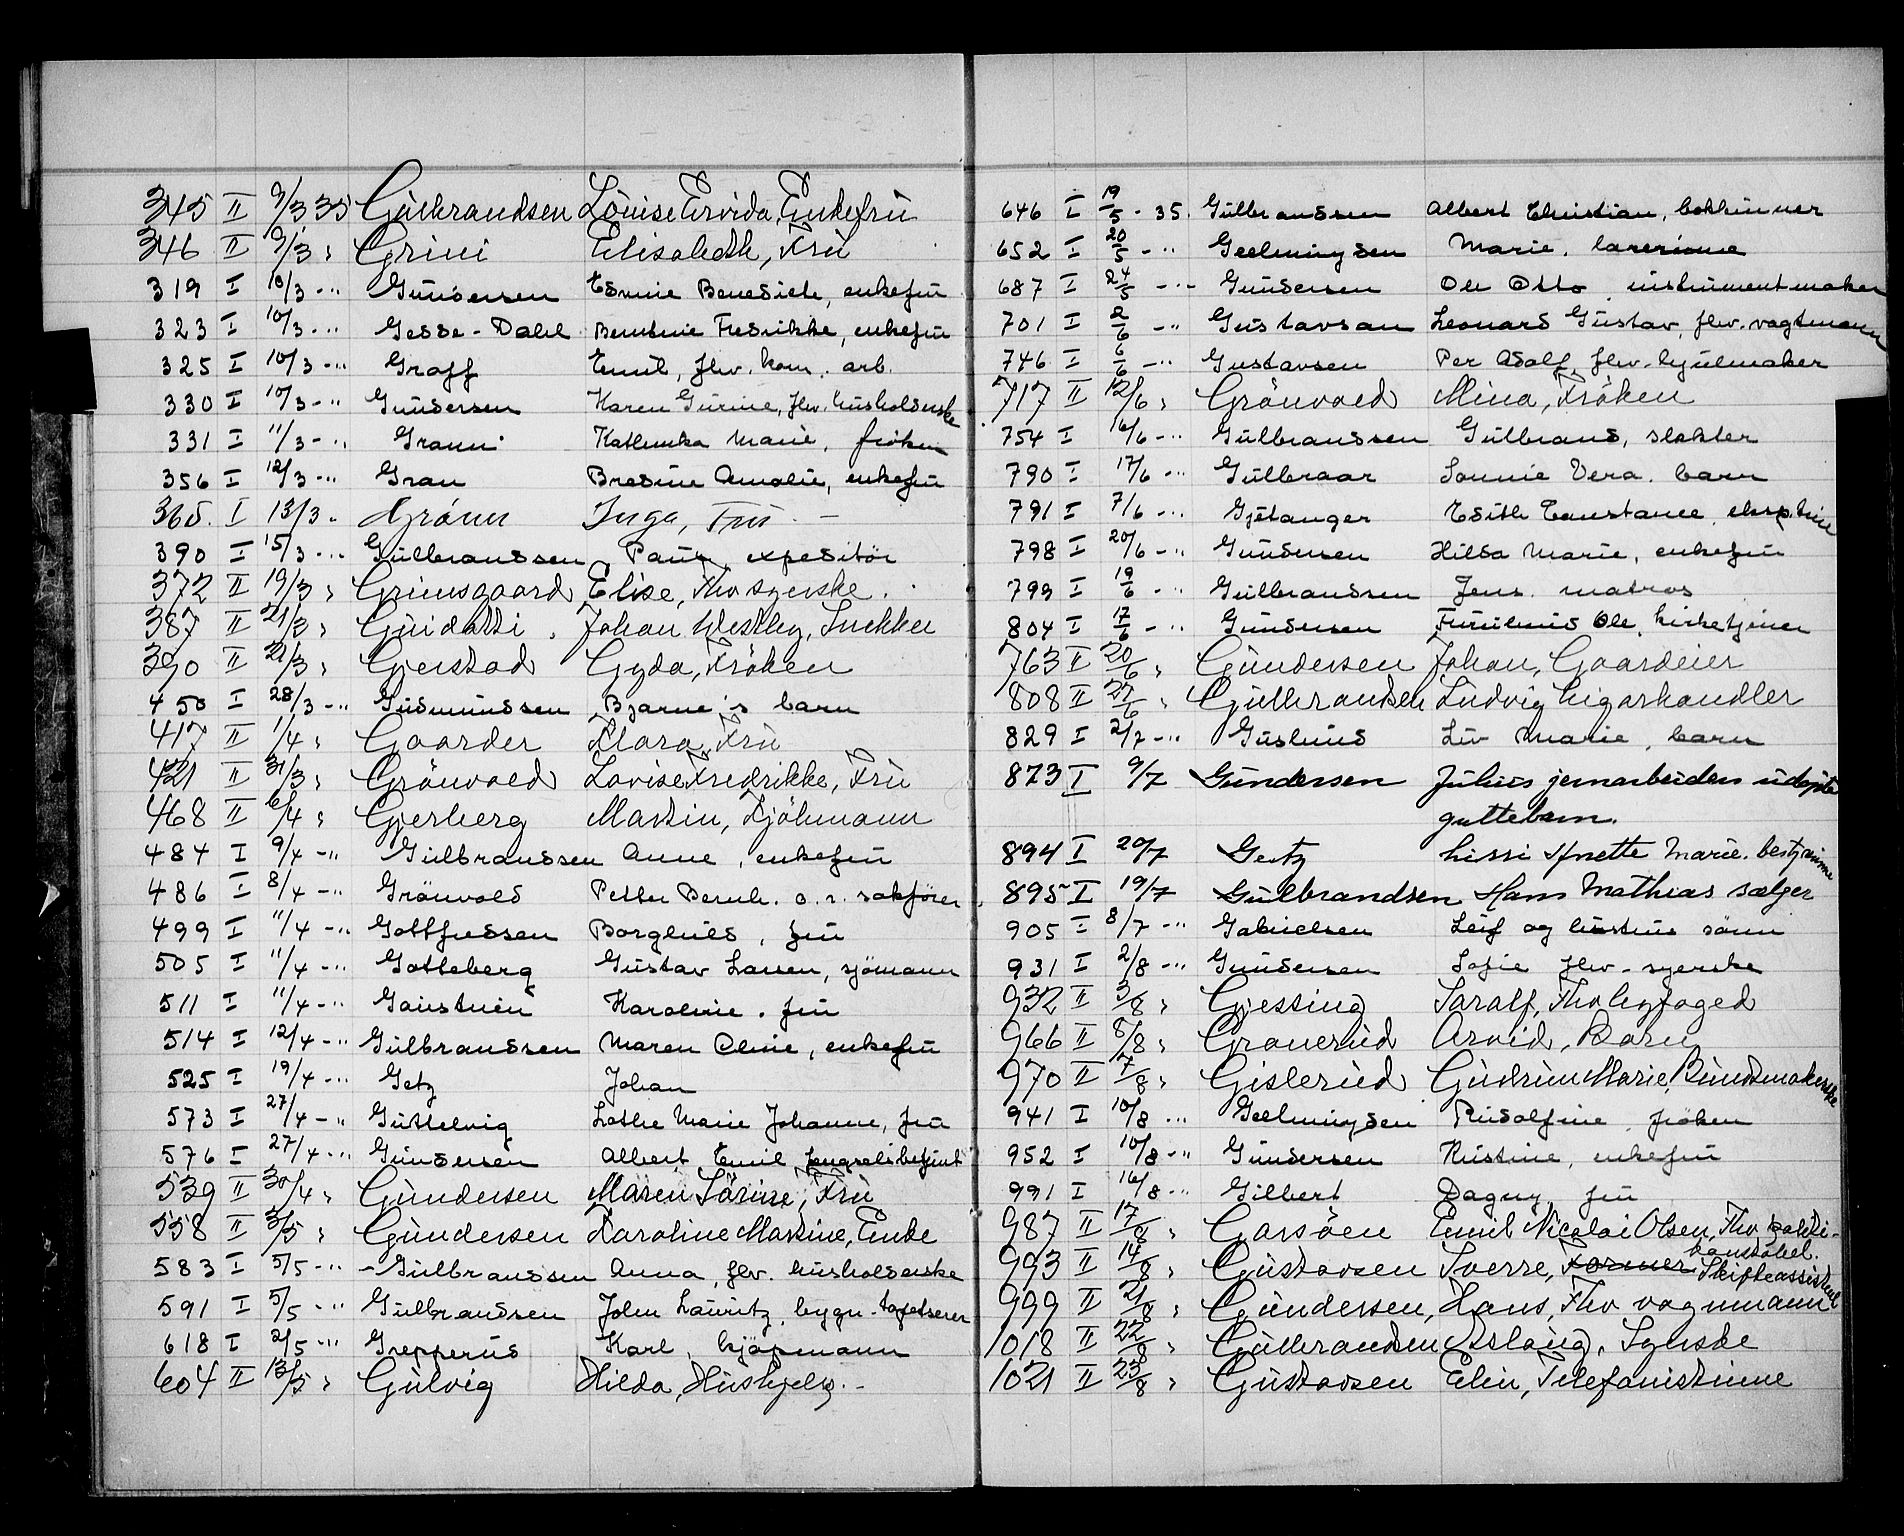 345 II 9/3 35 Gulbrandsen Louise Ervida, Enkefru
346 II 9/3 " Grini Elisabeth, Fru
319 I 10/3 - " Gundersen Esmie Benedicte, enkefru
323 I 10/3 - " Gesse-Dahl Berntine Fredrikke, enkefru
325 I 10/3 - " Graff Emil, fhv. kom. arb.
330 I 10/3 - " Gundersen Karen Gurine, fhv. husholderske
331 I 11/3 - " Grann Kathinka Marie, frøken
356 I 12/3 - " Gran Bredine Amalie, enkefru
365. I 13/3 " Grönn Inga, Fru
390 I 15/3 - " Gulbranssen Paul expeditör
372 II 19/3 " Grimsgaard Elise, Fhv syerske.
387 II 21/3 " Guidotti, Johan Westby, Snekker
390 II 21/3 " Gjerstad Gyda, Fröken
450 I 28/3 - " Gudmundsen Bjarne's barn
417 II 1/4 " Gaarder Klara, Fru
421 II 31/3 " Grönvold Lovise Fredrikke, Fru
468 II 6/4 " Gjerberg Martin, Kjöbmann
484 I 9/4 - " Gulbranssen Anne, enkefru
486 I 8/4 - " Grönvold Petter Bernh. o.r. sakförer
499 I 11/4 - " Gottfredsen Borghild, fru
505 I 11/4 - " Gotteberg Gustav Larsen, sjömann
511 I 11/4 - " Karoline. fru
514 I 12/4 - " Gulbranssen Maren Oline, enkefru
525 I 19/4 - " Getz Johan
573 I 27/4 - " Guttelvig Lothe Marie Johanne, fru
576 I 27/4 - " Gundersen Albert Emil fengselsbetjent
539 II 30/4 " Gundersen Maren Sörine, Fru
558 II 3/5 " Gundersen Karoline Martine, Enke
583 I 5/5 - " - Gulbranssen Anna, fhv. husholderske
591 I 5/5 - " Gulbrandsen John Lauritz, bygn. tapetserer
618 I 2/5 - " Grepperud Karl, kjöpmann
604 II 13/5 " Gulvig Hilda, Hushjelp. -
646 I 19/5 - 35. Gulbranssen Albert Christian, bokbinner
652 I 20/5 - " Geelmuyden Marie. lærerinne
687 I 24/5 - " Gundersen Ole Otto, instrumentmaker
701 I 2/6 - " Gustavsan Leonard Gustav, fhv. vagtmann
746 I 6/6 - " Gustavsen Per Adolf, fhv. hjulmaker
717 II 12/6 " Grönvold Mina, Fröken
754 I 16/6 - " Gulbranssen Gulbrand, slakter
790 I 17/6 - " Gulbraar Sonnie Vera. barn
791 I 7/6 - " Gjetanger Edith Constance, eksp.trise
798 I 20/6 - " Gundersen Hilda Marie, enkefru
799 I 19/6 - " Gulbrandsen Jens. matros
804 I 17/6 - " Gundersen Ole, kirketjener
763 II 20/6 " Gundersen Johan, Gaardeier
808 II 27/6 " Gulbrandsen Ludvig Sigarhandler
829 I 2/7 - " Guslund Liv Marie, barn
873 I 9/7 Gundersen Julius jernarbeiders udöpte
guttebarn.
894 I 20/7 Gertz Lissi Anette Marie. bestyrinne
895 I 19/7 Gulbrandsen Hans Mathias sælger
905 I 8/7 - " Gabrielsen Leif og hustrus sönn
931 I 2/8 - " Gundersen Sofie fhv. syerske
932 II 3/8 " Gjessing Saralf, Fhv byfoged
966 II 8/8 " Granerud Arvid, Barn
970 II 7/8 " Gislerud Gudrun Marie, Buntmakerske
941 I 10/8 - " Geelmuyden Rudolfine, fröken
952 I 10/8 - " Gundersen Kristine, enkefru
991 I 16/8 - " Gilbert Dagny fru
987 II 17/8 " Garsöen Emil Nicolai Olsen, Fhv politi-
konstabel.
993 II 14/8 " Gustavsen Sverre, Former Skifteassistent
999 II 21/8 " Gundersen, Hans, Fhv vognmann
1018 II 22/8 " Gulbrandsen Aslaug, Syerske
1021 II 23/8 " Gustavsen Elin, Telefonistinne